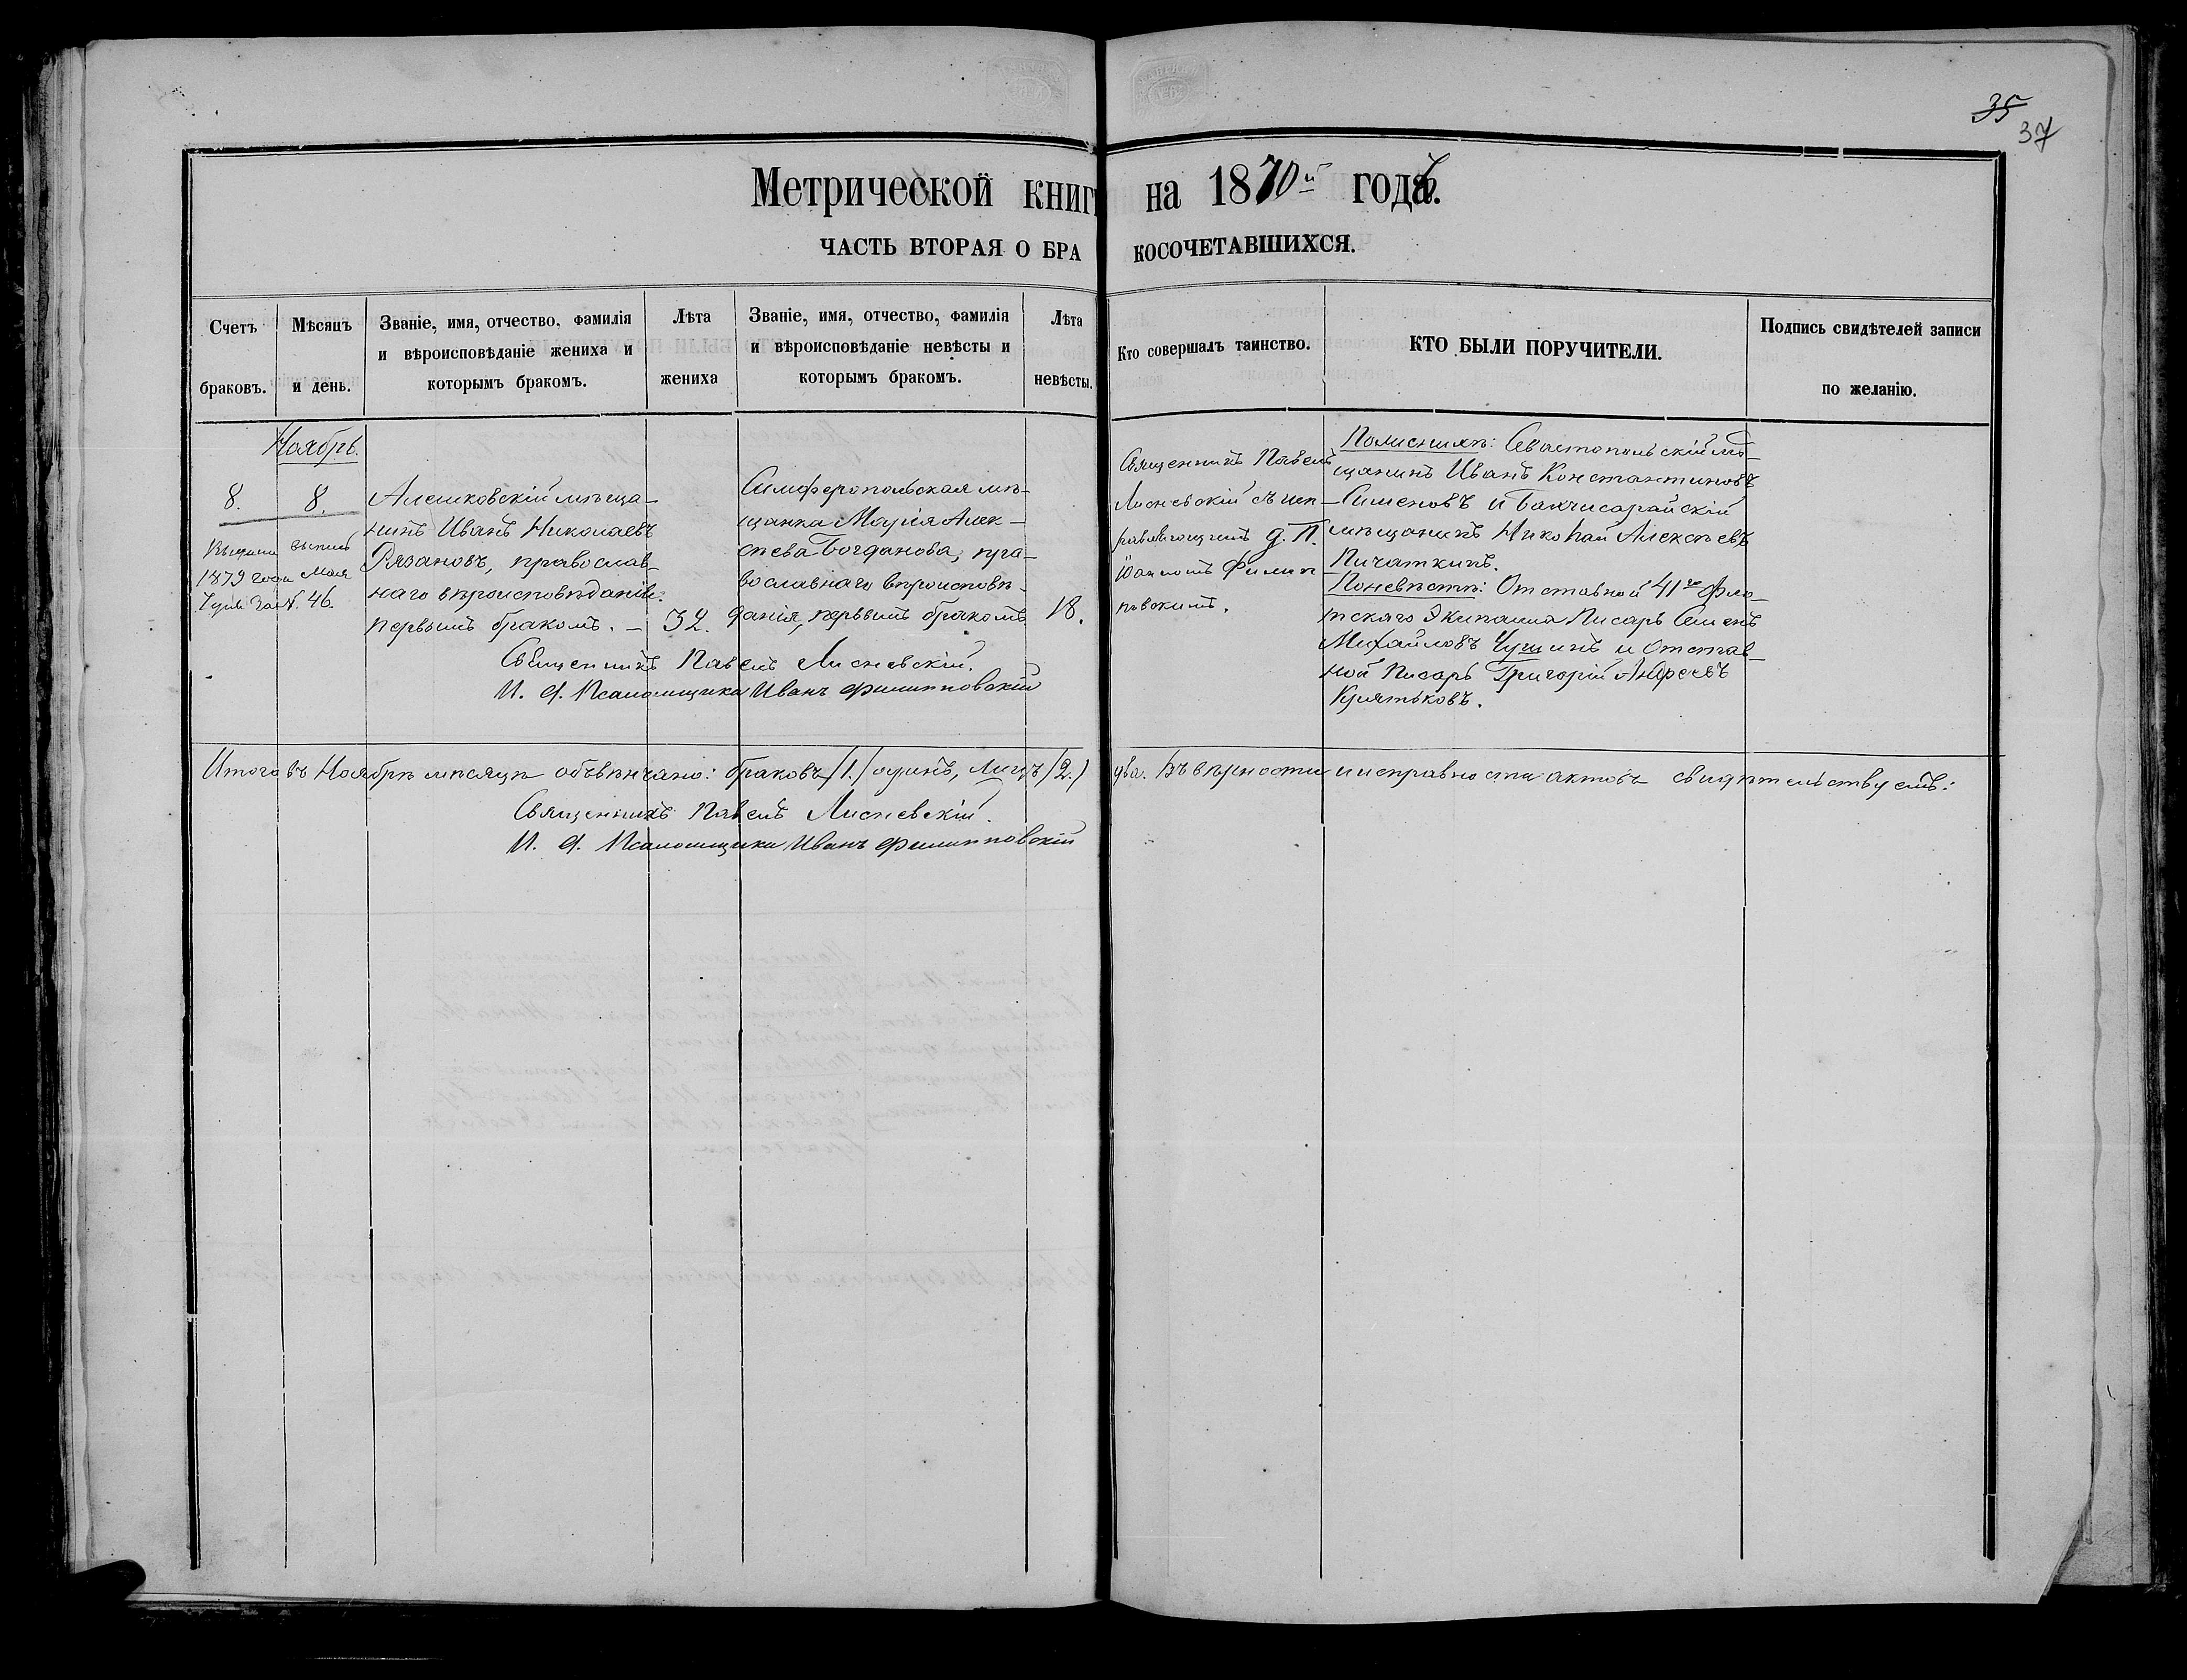 35
37
Метрической книг на 1870й годъ.
ЧАСТЬ ВТОРАЯ О БРАКОСОЧЕТАВШИХСЯ.
Счетъ браковъ.
Мѣсяцъ и день.
Званіе, имя, отчество, фамилія
и вѣроисповѣданіе жениха и
которымъ бракомъ.
Лѣта
жениха
Званіе, имя, отчество, фамилія
и вѣроисповѣданіе невѣсты и
которымъ бракомъ.
Лѣта
невѣсты.
Кто совершалъ таинство.
КТО БЫЛИ ПОРУЧИТЕЛИ.
Подпись свидѣтелей записи
по желанію.
Ноябрь.
8.
8.
выпись
1879 года Мая
за N. 46.
Алешковскій мѣща-
нинъ Иванъ Николаевъ
Рязановъ, православ-
наго вѣроисповѣданія.
первымъ бракомъ. —
32.
Симферопольская мѣ-
щанка Марія Алек-
сѣева Богданова, пра-
вославнаго вѣроисповѣ-
данія, первымъ бракомъ
18.
Священникъ Павелъ
Лисневскій съ исп-
равляющимъ д. П.
Іоанномъ Филип-
повскимъ.
По женихѣ: Севастопольскій мѣ-
щанинъ Иванъ Константиновъ
Сименовъ и Бахчисарайскій
мѣщанинъ Николай Алексѣевъ
Пичаткинъ.
По невѣстѣ: Отставной 41го Фло-
тскаго Экипажа Писарь Семенъ
Михайловъ Чушинъ и Отстав-
ной Писарь Григорій Андреевъ
Священникъ Павелъ Лисневскій.
И. д. Псаломщика Иванъ Филипповскій
Итого въ Ноябрѣ мѣсяцѣ обвѣнчано: браковъ /1./ одинъ, лицъ /2./ два. Въ вѣрности и исправности актовъ свидѣтельствуемъ:
Священникъ Павелъ Лисневскій.
И. д. Псаломщика Иванъ Филипповскій